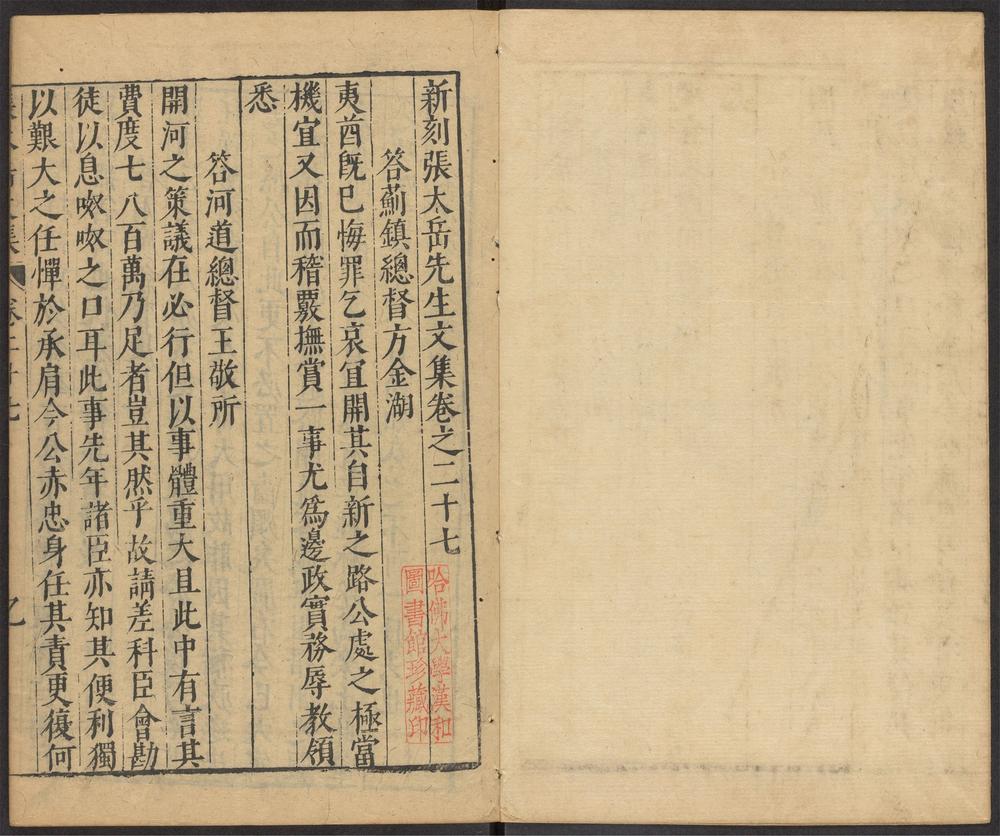 新刻張太岳先生文集卷之二十七
答薊鎮總督方金湖
夷酋旣已悔罪乞哀宜開其自新之路公處之極當
機宜又因而稽覈撫賞一事尤爲邊政實務辱教領
悉
答河道總督王敬所
開河之策議在必行但以事體重大且此中有言其
費度七八百萬乃足者豈其然乎故請差科臣會勘
徒以息呶呶之口耳此事先年諸臣亦知其便利獨
以艱大之任憚於承肩今公赤忠身任其責更復何
哈佛大學漢和
圖書館珍藏印